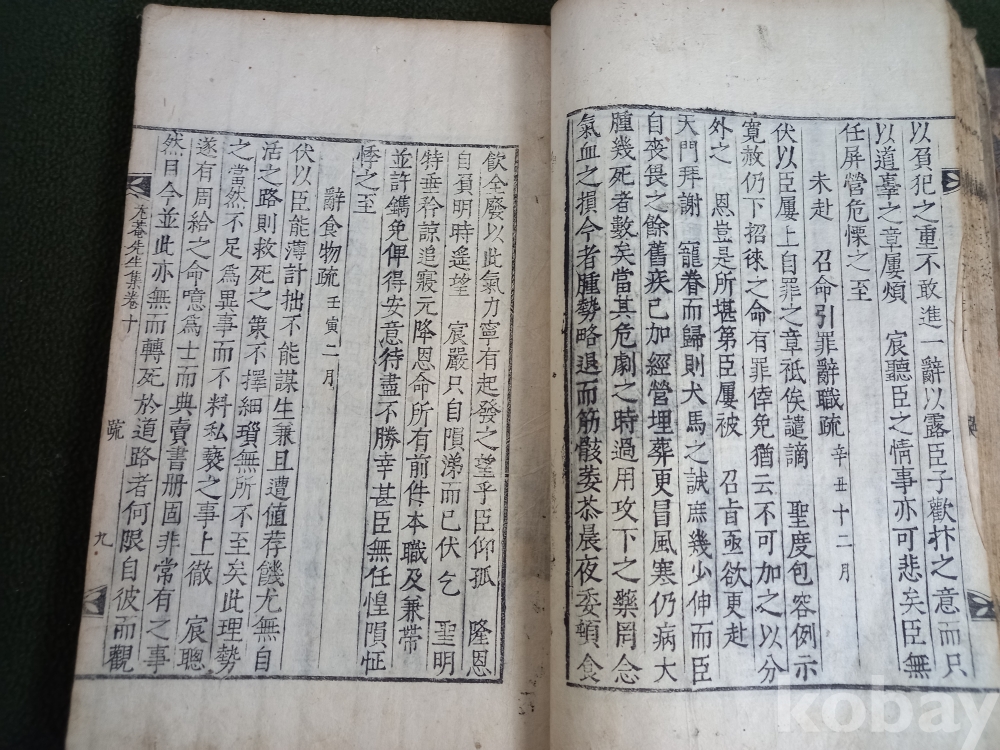 以負犯之重不敢進一辭以露臣子歡抃之意而只
以道辜之章屢煩 宸聽臣之情事亦可悲矣臣無
任屏營危慄之至
未赴 召命引罪辭職疏 辛丑十二月
伏以臣屢上自罪之章祗俟譴謫 聖度包容例示
寬赦仍下招徠之命有罪倖免猶云不可加之以分
外之 恩豈是所堪第臣屢被 召旨亟欲更赴
天門拜謝 寵眷而歸則犬馬之誠庶幾少伸而臣
自喪畏之餘舊疾已加經營埋葬更冒風寒仍病大
腫幾死者數矣當其危劇之時過用攻下之藥罔念
氣血之損今者腫勢略退而筋骸萎苶晨夜委頓食
飲全廢以此氣力寧有起發之望乎臣仰孤 隆恩
自負明時遙望 宸嚴只自隕涕而已伏乞 聖明
特垂矜諒追寢元降恩命所有前件本職及兼帶
並許鐫免俾得安意待盡不勝幸甚臣無任惶隕怔
悸之至
辭食物疏 壬寅二月
伏以臣能薄計拙不能謀生兼且遭値荐饑尤無自
活之路則救死之策不擇細瑣無所不至矣此理勢
之當然不足爲異事而不料私褻之事上徹 宸聰
遂有周給之命噫爲士而典賣書册固非常有之事
然目今並此亦無而轉死於道路者何限自彼而觀
尤菴先生集卷十 疏 九
kobay